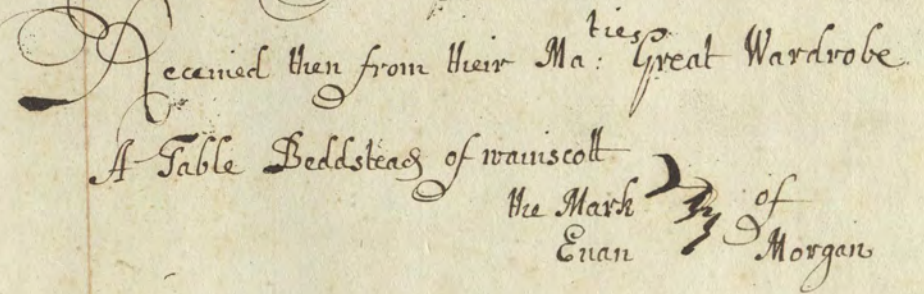 Receiued then from their Ma:ties Great Wardrobe
A Table Beddstead of wainscott
the Mark of
Euan Morgan